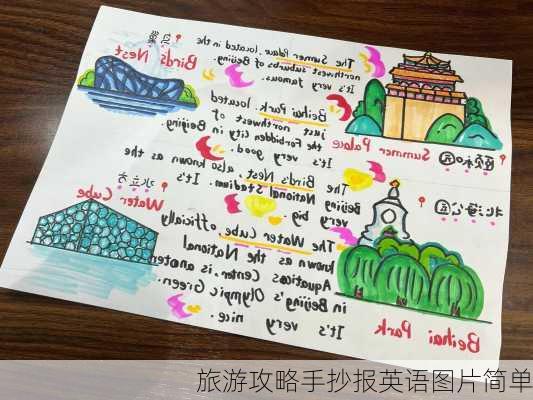 鸟巢
Birds Nest
The Summer Palace, located in the
northwest suburbs of Beijing.
It's very famous.
颐和园
Summer Palace
Beihai Park, located
just northwest of
the Forbidden City in Beijing.
It's very good.
水立方
Water Cube
The Birds Nest, also known as the
Beijing National Stadium. It's
very big.
北海公园
Beihai Park
The Water Cube, officially
known as the National
Aquatics Center, is another
in Beijing's Olympic Green.
It's very nice.
旅游攻略手抄报英语图片简单